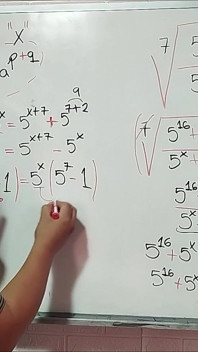 "x"
a^(p+q)
7√5
9
x = 5^(x+7) + 5^(7+2)
= 5^(x+7) - 5^x
(7√5^16 +
5^x +
1) = 5^x (5^7 - 1)
5^16
5^x
5^16 + 5^x
5^16 + 5^x